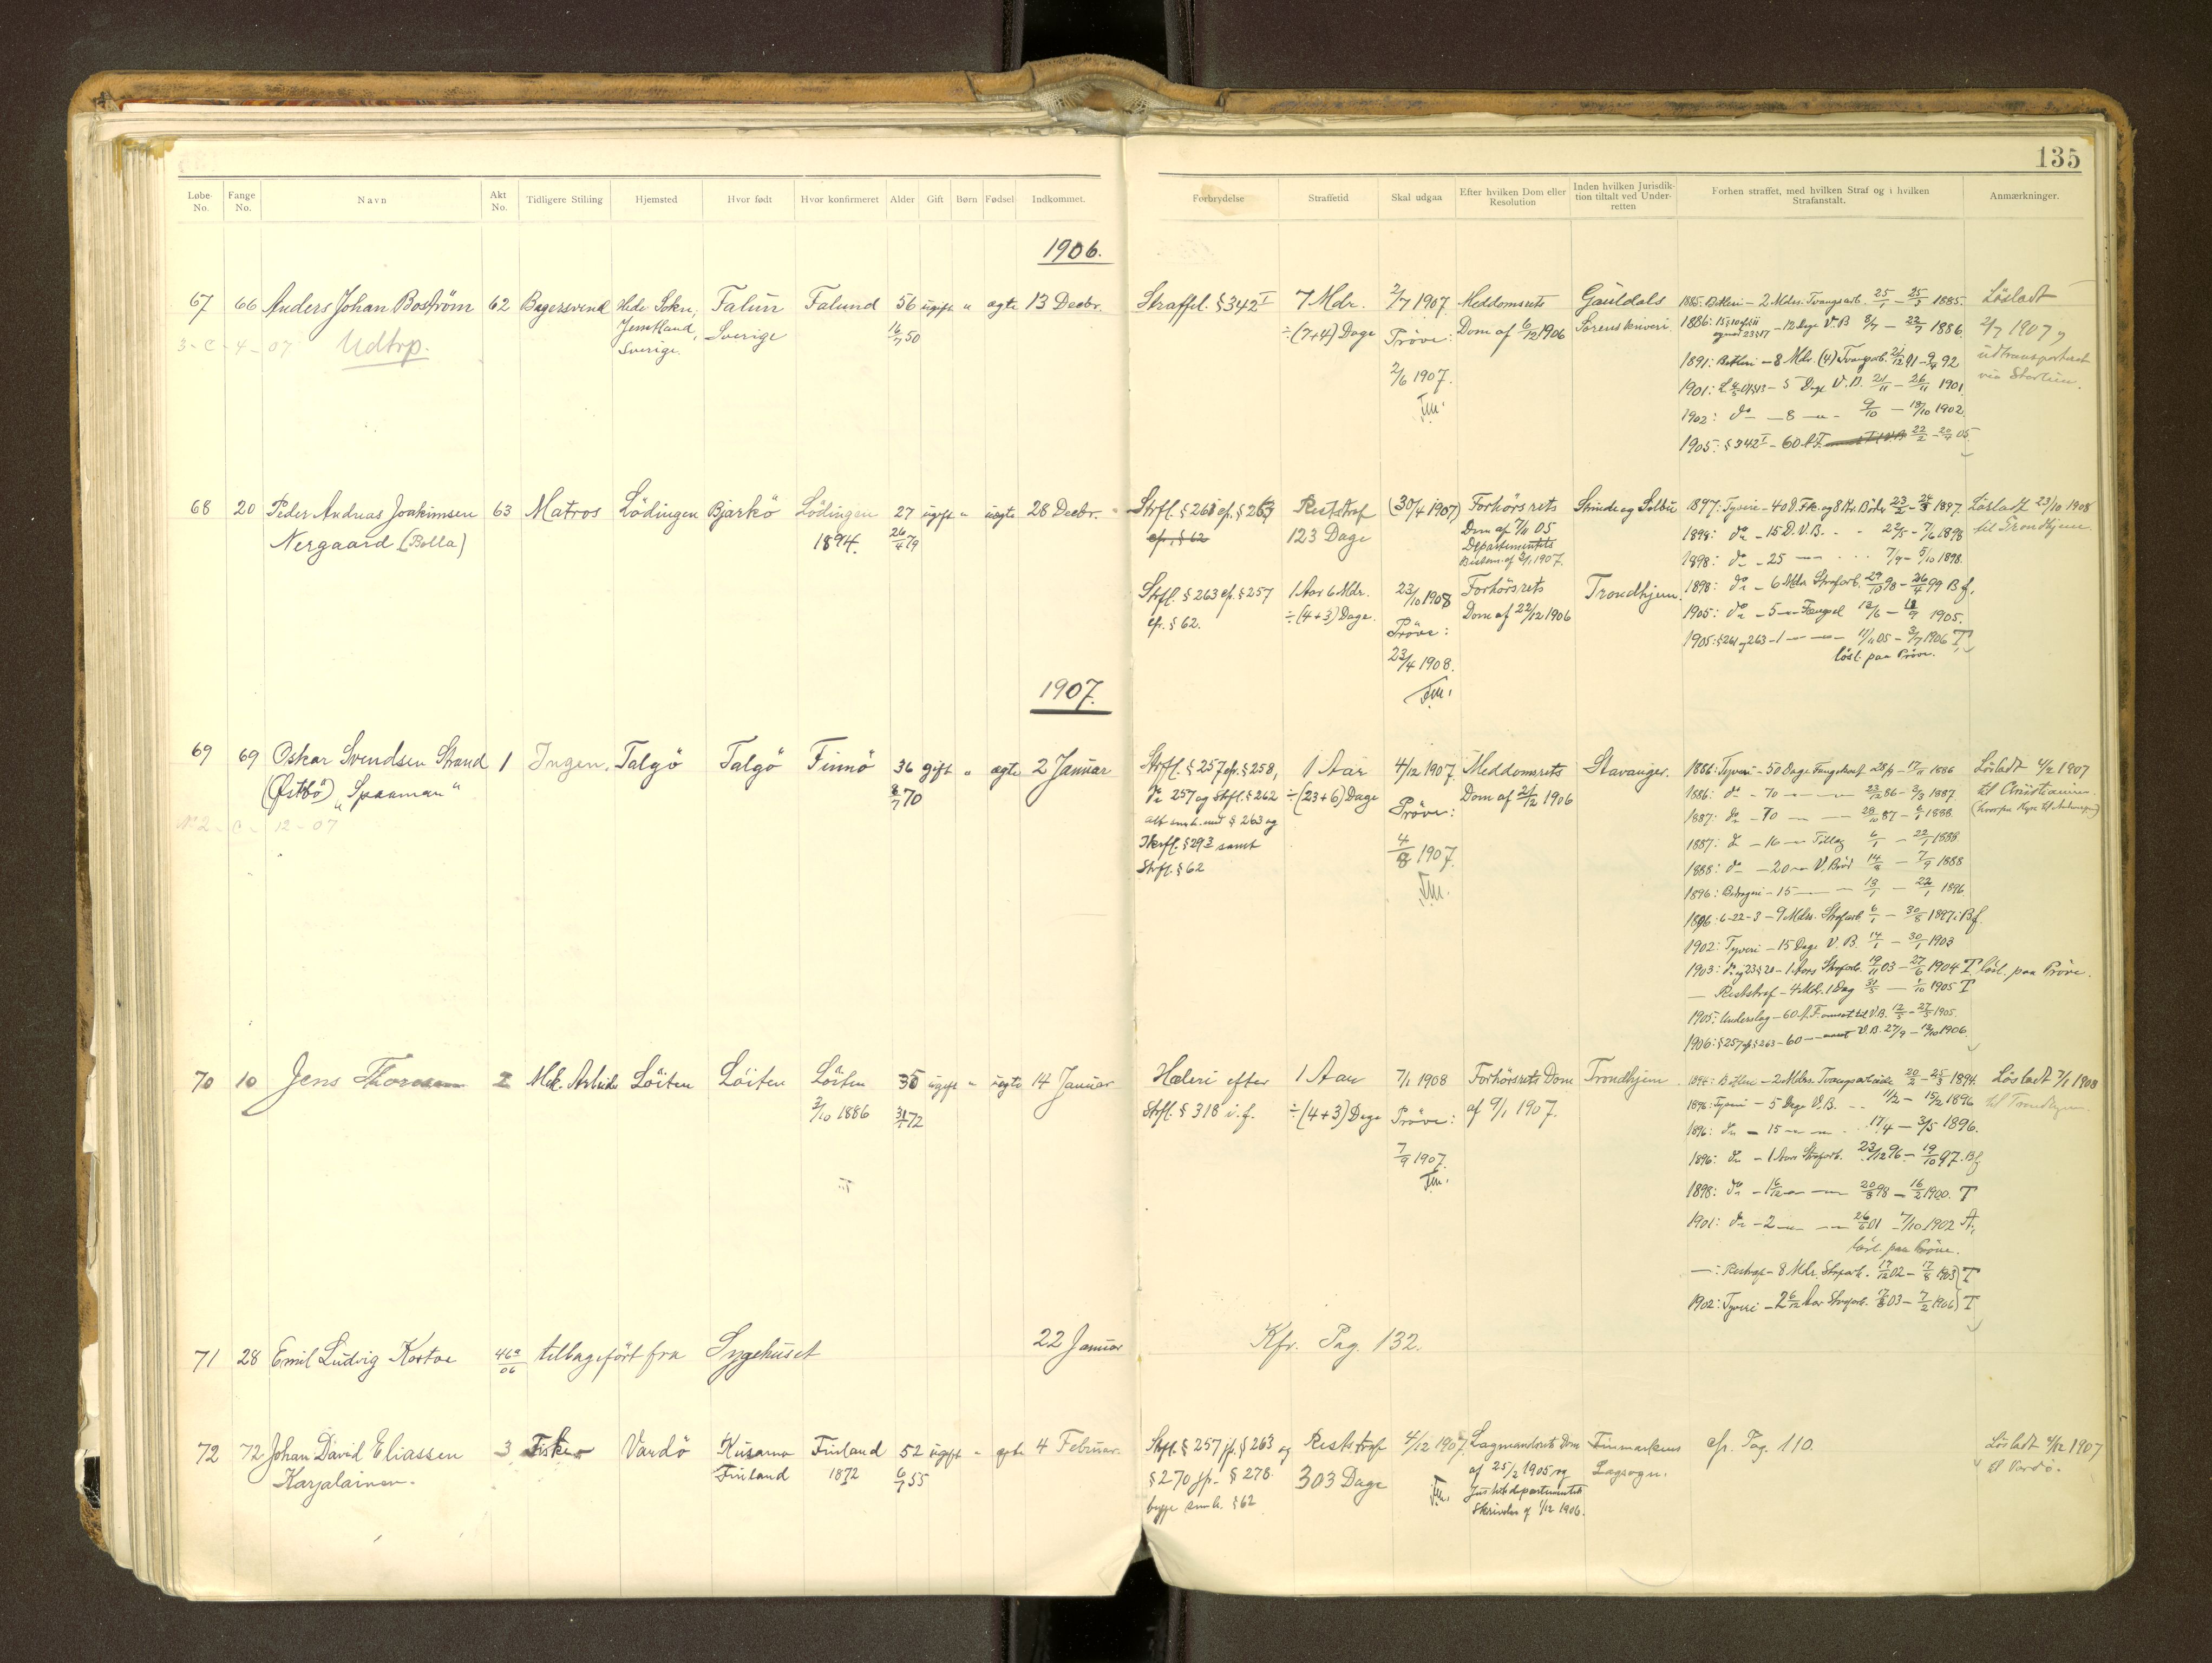 135
Løbe No. Fange No. Navn Akt No. Tidligere Stilling Hjemsted Hvor født Hvor konfirmeret Alder Gift Børn Fødsel Indkommet. Forbrydelse Straffetid Skal udgaa Efter hvilken Dom eller Resolution Inden hvilken Jurisdiktion tiltalt ved Underretten Forhen straffet, med hvilken Straf og i hvilken Strafanstalt. Anmærkninger.
1906.
67 66 Anders Johan Boström 62 Bagersvend Hede Sokn, Falun Falund 56 ugift " ægte 13 Decbr. Straffel. § 342 I 7 Mdr. 2/7 1907. Meddomsrets Gauldals 1885: Betleri - 2 Mdrs. Tvangsarb. 25/1 - 25/3 1885. Løsladt
3 - C - 4 - 07 Udtrp. Jemtland, Sverige. Sverige 16/7 50 ÷ (7+4) Dage Prøve: Dom af 6/12 1906 Sorenskriveri 1886: - 12 Dage V.B. 8/7 - 22/7 1886. 2/7 1907 og
2/6 1907. 1891: Betleri - 8 Mdr. (4) Tvangsarb. 21/12 91 - 9/4 92 udtransporteret
T.M. 1901: - 5 Dage V.B. 21/11 - 26/11 1901 via Storlien.
1902: do - 8 - " - 9/10 - 18/10 1902.
1905: § 342 I - 60 22/2 - 20/4 05.
68 20 Peder Andreas Joakimsen 63 Matros Lödingen Bjarkö Lödingen 27 ugift " uægte 28 Decbr. Strfl. § 261 cfr. § 263 Reststraf (30/4 1907) Forhørsrets Strinda og Selbu 1897: Tyveri - 40 D. Fgs. og 8 Kr. Bøder 23/2 - 24/3 1897. Løsladt 23/10 1908
Nergaard (Bolla) 1894. 26/4 79 cfr. § 62 123 Dage Dom af 7/11 05 1898: do - 15 D. V.B. - 22/5 - 7/6 1898 til Trondhjem.
Departementets
Beslutn. af 2/1 1907. 1898: do - 25 - 7/9 - 5/10 1898.
Strfl. § 263 cfr. § 257 1 Aar 6 Mdr. 23/10 1908 Forhørsrets Trondhjem. 1898: do - 6 Mdr. Strafarb. 29/10 98 - 26/4 99 Bf.
cfr. § 62. ÷ (4+3) Dage. Prøve: Dom af 22/12 1906 1905: do - 5 - Fængsel 12/6 - 1905.
23/4 1908. 1905: § 261 og 263 - 1 - 11/11 05 - 3/7 1906 T.
T.M. løsl. paa Prøve.
1907.
69 69 Oskar Svendsen Strand 1 Ingen. Talgö Talgö Finnö 36 gift " ægte 2 Januar Strfl. § 257 cfr. § 258, 1 Aar 4/12 1907. Meddomsrets Stavanger. 1886: Tyveri - 50 Dage Fængselsstraf 28/9 - 17/11 1886 Løsladt 4/12 1907
(Østbö) "Spaaman" 8/7 70 do 257 og Strfl. § 262 ÷ (23+6) Dage Prøve: Dom af 21/12 1906 1886: do - 70 - 23/12 86 - 3/3 1887. til Christiania.
No 2 - C - 12 - 07 alt smh. med § 263 og 4/8 1907. 1887: do - 70 - 28/10 87 - 6/1 1888.
Ikrfl. § 29 3 samt T.M. 1887: do - 16 - Tillæg 6/1 - 22/1 1888.
Strfl. § 62 1888: do - 20 - V. Brød 14/8 - 7/9 1888
1896: Bedrageri - 15 - 22/1 1896
1896: 6-22-3 - 9 Mdrs. Strafarb. 6/1 - 30/8 1897. Bf.
1902: Tyveri - 15 Dage V.B. 14/1 - 30/1 1903
1903: do og 23 § 20 - 1 Aars Strafarb. 19/11 03 - 27/6 1904 T. løsl. paa Prøve.
— Reststraf - 4 Mdr. 1 Dag 31/5 - 1/10 1905 T
1905: Underslag - 60 omsat til V.B. 12/5 - 27/5 1905.
1906: § 257 cfr. § 263 - 60 - omsat V.B. 27/9 - 13/10 1906.
70 10 Jens Thoresen 2 Mek. Arbeider Löiten Löiten Löiten 35 ugift " uægte 14 Januar Hæleri efter 1 Aar 7/1 1908 Forhørsrets Dom Trondhjem. 1894: Betleri - 2 Mdrs. Tvangsarbeide 20/2 - 25/3 1894. Løsladt 7/1 1908
3/10 1886 72 Strfl. § 318 i.f. ÷ (4+3) Dage Prøve: af 9/1 1907. 1896: Tyveri - 5 Dage V.B. - 11/2 - 15/2 1896 til Trondhjem.
7/9 1907. 1896: do - 15 - " - 17/4 - 3/5 1896.
T.M. 1896: do - 1 Aars Strafarb. 23/12 96 - 19/10 97. Bf
1898: do - 1 6/12 - 20/8 98 - 16/2 1900. T
1901: do - 2 - 26/6 01 - 7/10 1902 A.
løsl. paa Prøve.
—: Reststraf - 8 Mdr. Strafarb. 17/12 02 - 17/8 1903 T
1902: Tyveri - 2 6/12 Aar Strafarb. 17/8 03 - 7/2 1906 T
71 28 Emil Ludvig Kortoe 46a/06 tilbageført fra Sygehuset 22 Januar Kfr. Pag. 132.
72 72 Johan David Eliassen 3 Fisker Vardö Kusamo Finland 52 ugift " ægte 4 Februar. Strfl. § 257 jfr. § 263 og Reststraf 4/12 1907. Lagmandsrets Dom Finmarkens cfr. Pag. 110. Løsladt 4/12 1907
Karjalainen. Finland 1872 6/7 55 § 270 jfr. § 278 303 Dage T.M. af 25/2 1905 og Lagsogn. til Vardö.
begge smh. § 62 Justitsdepartementets
Skrivelse af 1/12 1906.